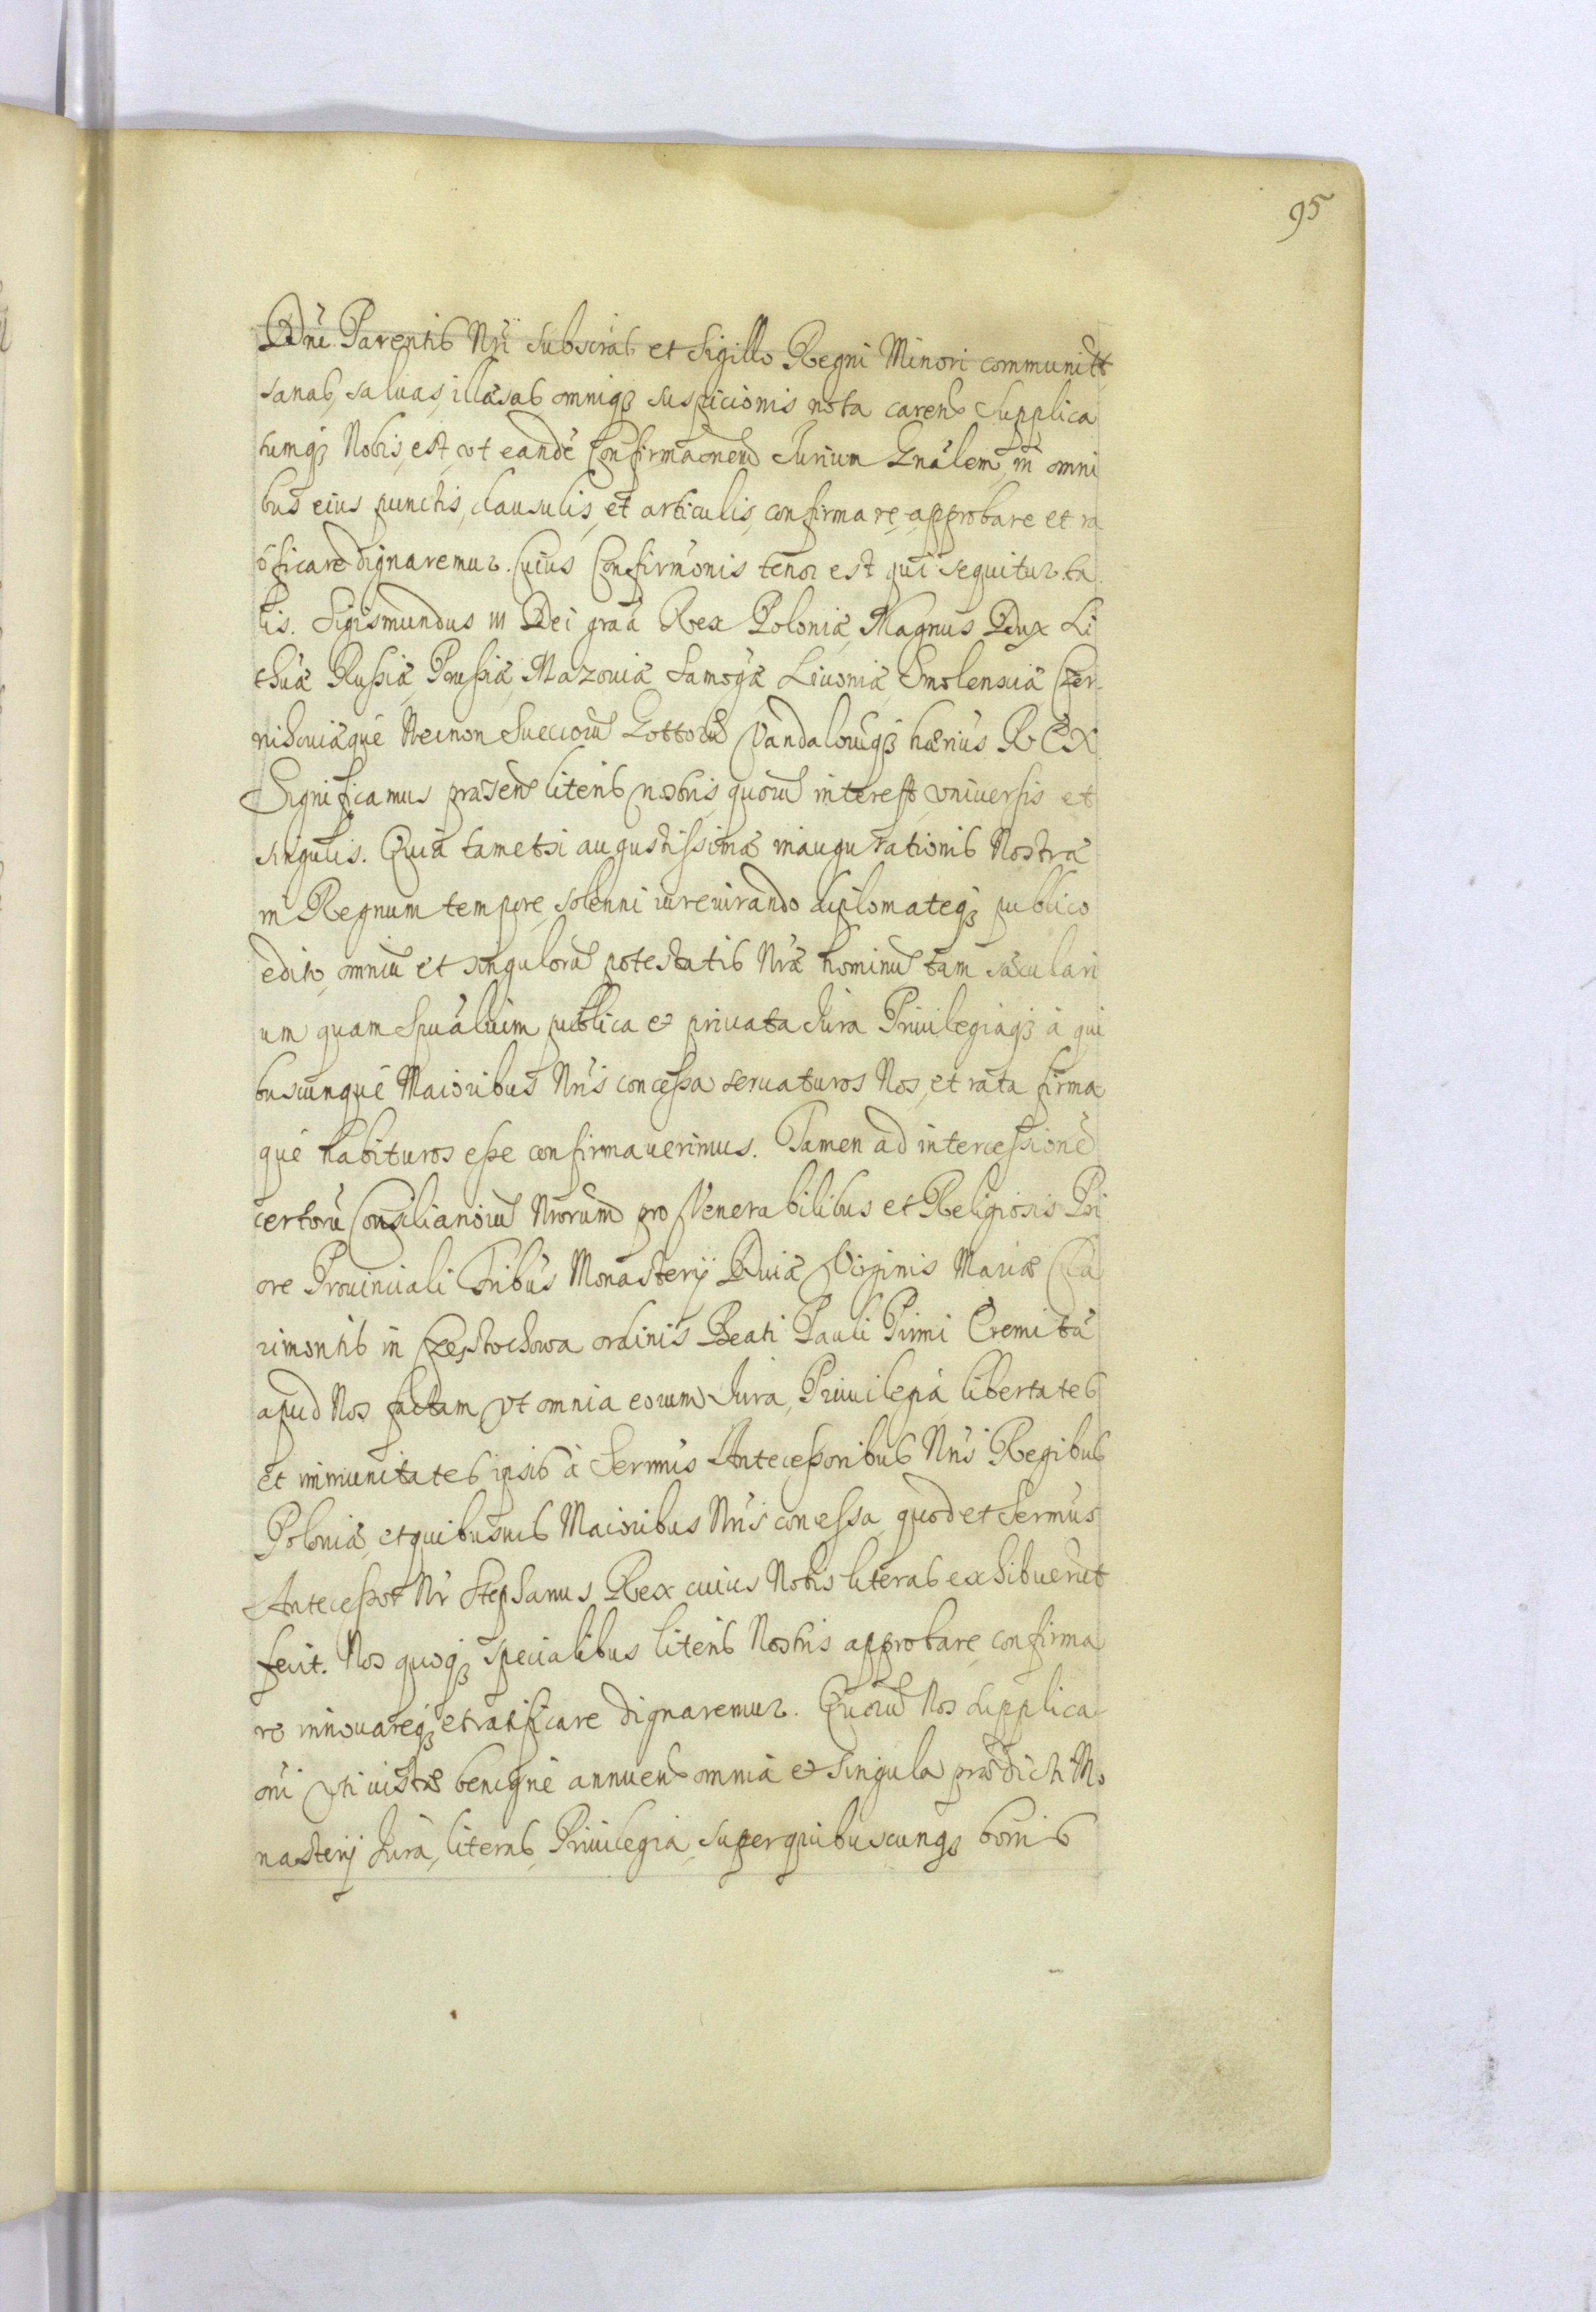 95
Dni Parentis Nri subscras et Sigillo Regni Minori communitt
sanas, saluas, illæsas omniq₃ suspicionis nota carens Supplica
tumq₃ Nobis, est, vt eandē Confirmaōnem Jurium Gnālem, in omni
bus eius punctis, clausulis, et articulis, confirmare, approbare et ra
tificare dignaremur. Cuius Confirmōnis tenor est qui sequitur ta
lis. Sigismundus III Dei graā Rex Poloniæ, Magnus Dux Li
thuæ Rußiæ, Prußiæ, Mazouiæ Samogæ Liuoniæ, Smolensciæ Czer
nihouiæque Necnon Suecorū Gottorū Vandalorūq₃ hærius REX
Significamus præsen literis nostris, quorū interest, vniuersis et
singulis. Quia tametsi augustissimæ inaugurationis Nostræ
in Regnum tempore, solenni iureiurando diplomateq₃ publico
edito, omniū et singulorū potestatis Nræ hominū tam sæculari
um quam Spuālium publica et priuata Jura Priuilegiaq₃ à qui
buscunque Maioribus Nris concessa seruaturos Nos, et rata firma
que habituros eße confirmauerimus. Tamen ad intercessionē
certorū Consiliariorū Nrorum pro Venerabilibus et Religiosis Pri
ore Prouinciali Fribus Monasterij Diuæ Virginis Mariæ Cla
rimontis in Częstochowa ordinis Beati Pauli Primi Eremitæ
apud Nos factam vt omnia eorum Jura, Priuilegia libertates
et immunitates ipsis à Sermis Anteceßoribus Nris Regibus
Poloniæ, et quibusuis Maioribus Nris concessa, quod et Sermus
Anteceßor Nr Stephanus Rex cuius Nobis literas exhibuerūt
fecit. Nos quoq₃ specialibus literis Nostris approbare, confirma
re innouareq₃ et ratificare dignaremur. Quorū Nos supplica
oni vti iustæ benigne annuen omnia et singula prædicti Mo
nasterij Jura, literas, Priuilegia, super quibuscunq₃ bonis